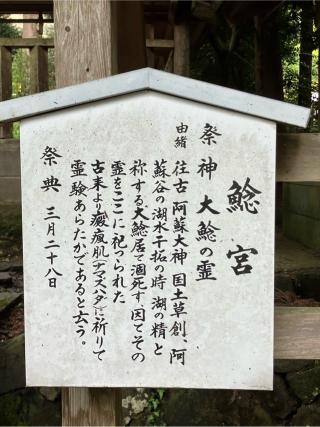 鯰宮
祭神 大鯰の霊
由緒
往古 阿蘇大神 国土草創、阿
蘇谷の湖水干拓の時 湖の精と
称する大鯰居て涸死す、因てその
霊をここに祀られた
古来より癜瘋肌(ナマズハダ)に祈りて
霊験あらたかであると云う。
祭典 三月二十八日